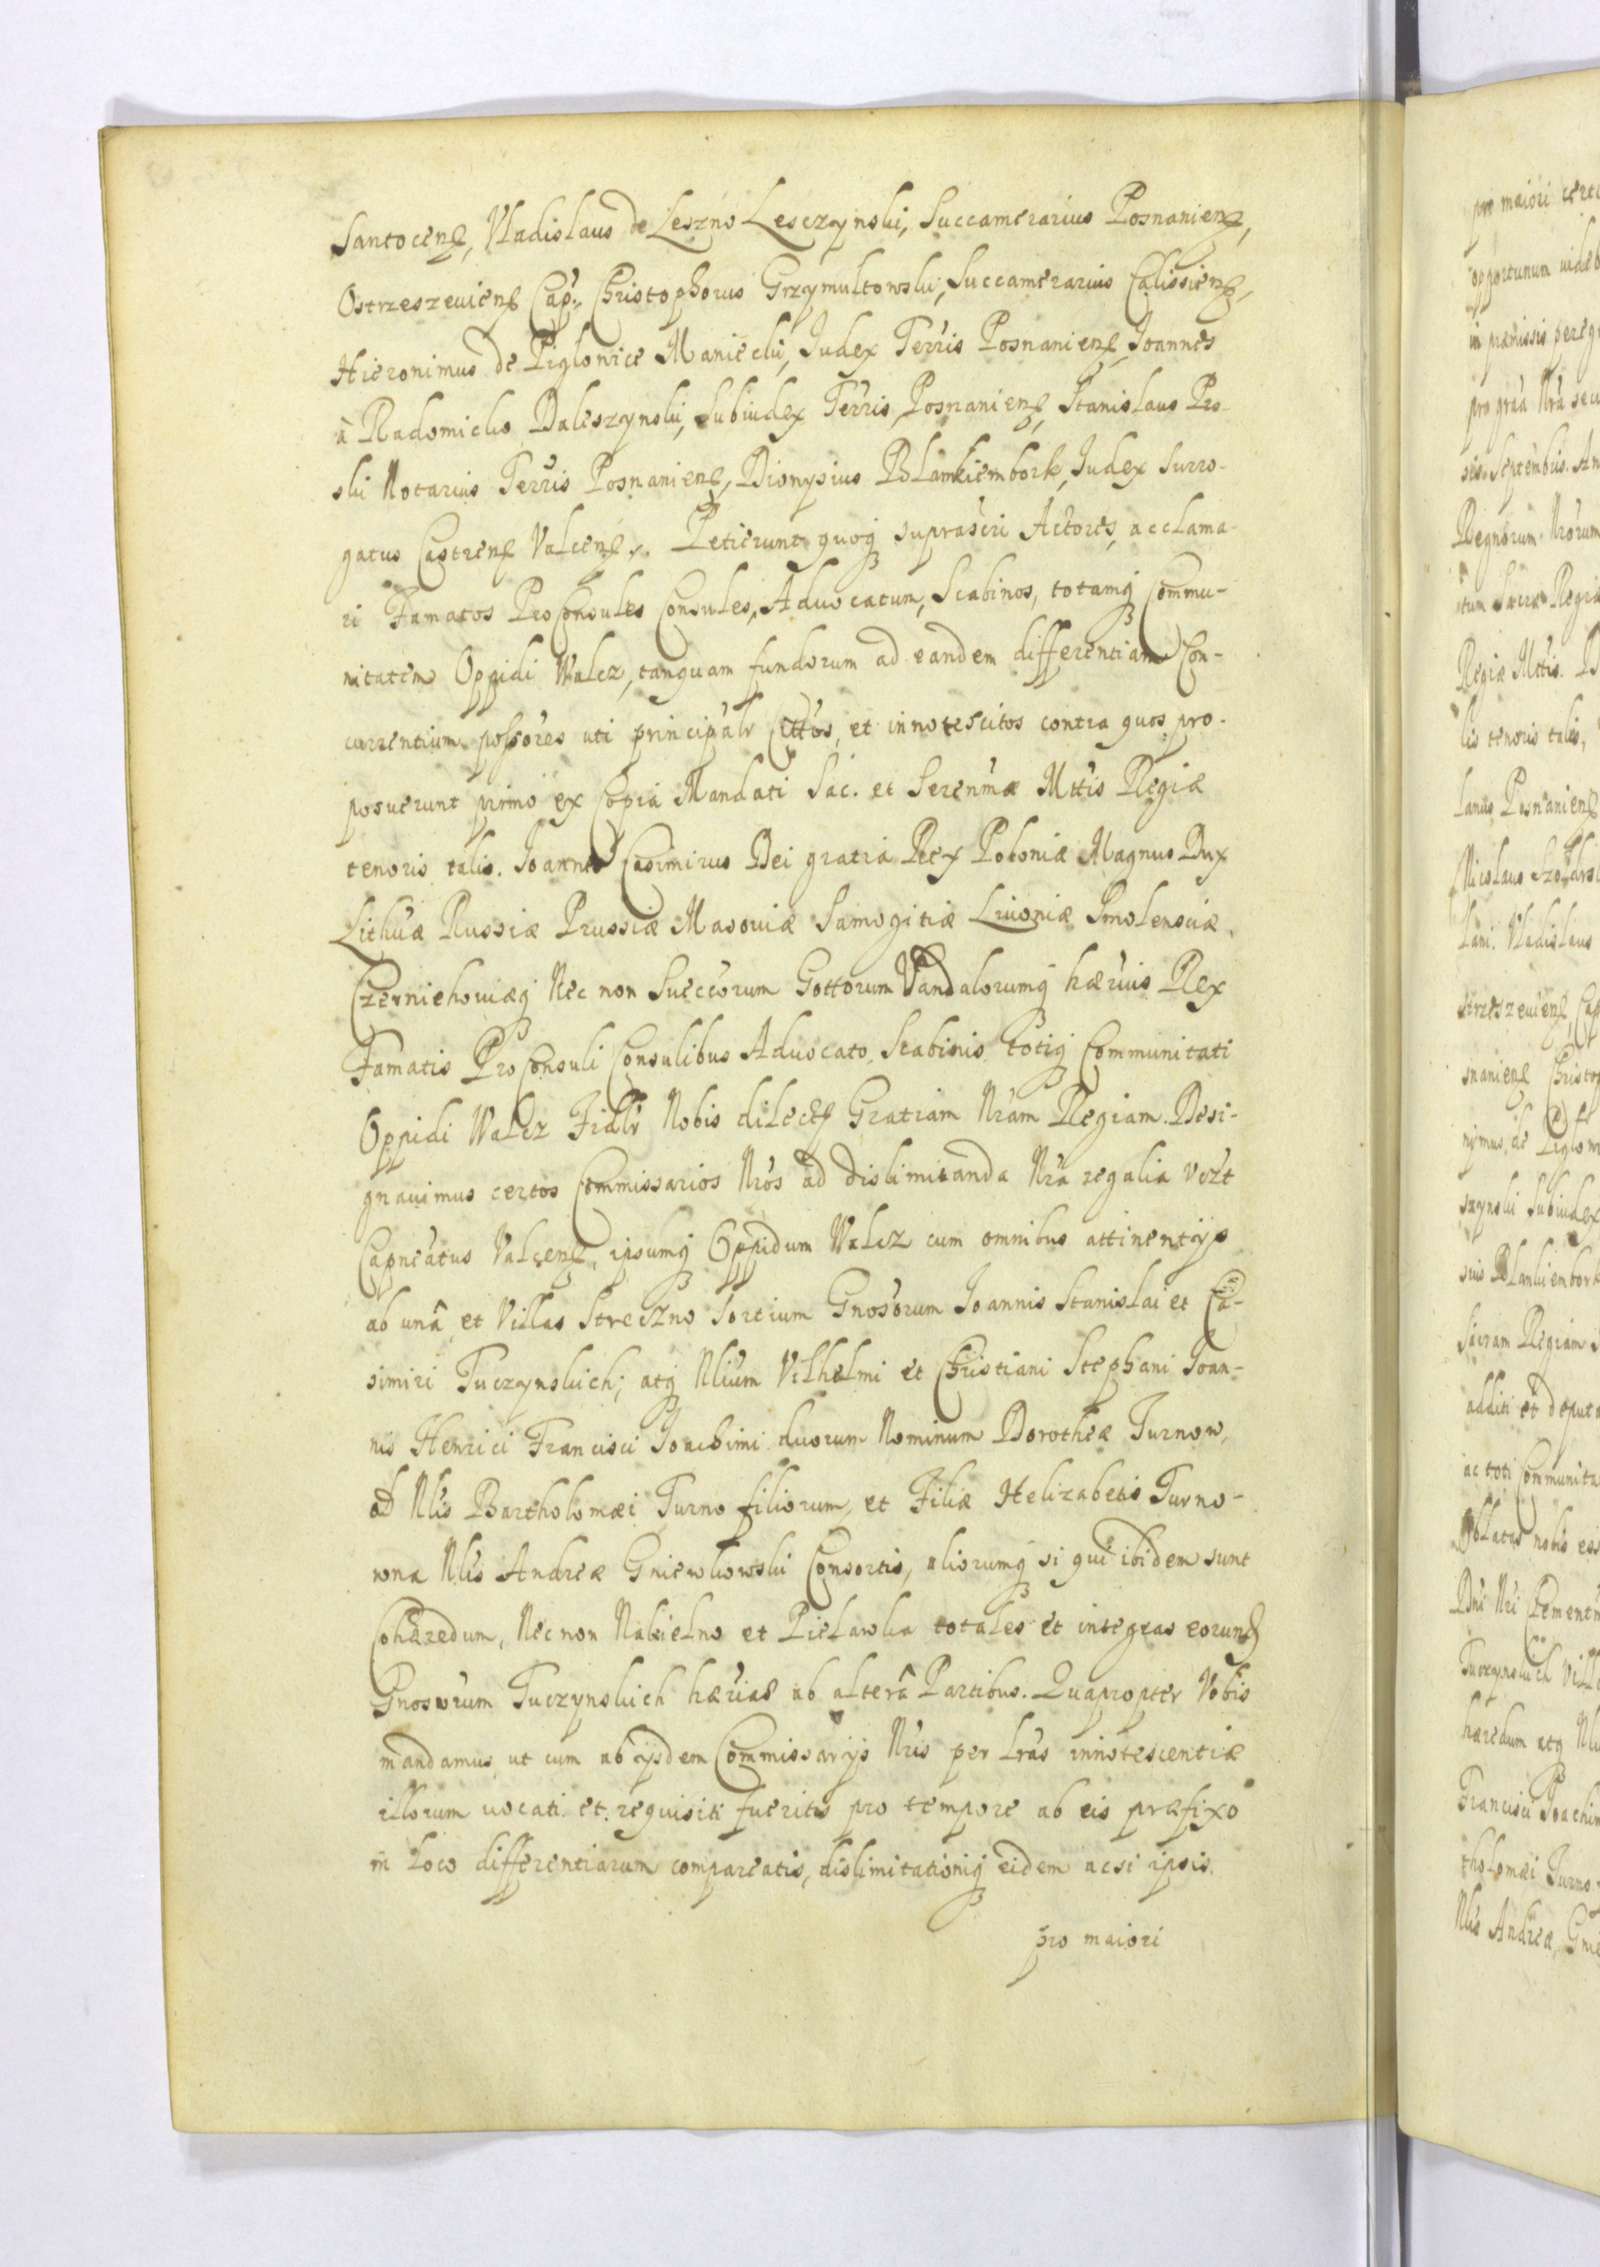 Santocenß, Vladislaus de Leszno Lesczynski, Succamerarius Posnanienß,
Ostrzeszeuienß Cap., Christophorus Grzymultowski, Succamerarius Calissienß,
Hieronimus de Piglowice Maniecki, Judex Terris Posnanienß, Joannes
à Radomicko Daleszynski, Subiudex Terris, Posnanienß, Stanislaus Pro-
ski Notarius Terris Posnanienß, Dionysius Blamkiembork, Judex Surro-
gatus Castrenß Valcenß. Petierunt quoq suprascri Actores, acclama-
ri Famatos ProConsules Consules, Aduocatum, Scabinos, totamq Commu-
nitatem Oppidi Walcz, tanquam fundorum ad eandem differentiam Con-
currentium possores uti principalr Cittos, et innotescitos contra quos pro-
posuerunt primo ex Copia Mandati Sac. et Serenmæ Mttis Regiæ
tenoris talis. Joannes Casimirus Dei gratia Rex Poloniæ Magnus Dux
Lithuæ Russiæ Prussiæ Masouiæ Samogitiæ Liuoniæ Smolensciæ
Czerniehouiæq Nec non Suecorum Gottorum Vandalorumq hærius Rex
Famatis ProConsuli Consulibus Aduocato Scabinis totiq Communitati
Oppidi Walcz Fidlr Nobis dilectß Gratiam Nram Regiam. Desi-
gnauimus certos Commissarios Nros ad dislimitanda Nra regalia vezt
Capneatus Valcenß, ipsumq Oppidum Walcz cum omnibus attinentijs
ab unâ et Villas Streczno Sortium Gnosorum Joannis Stanislai et Ca-
simiri Tuczynskich; atq Nlium Vilhelmi et Christiani Stephani Joan-
nis Henrici Francisci Joachimi duorum Nominum Dorotheæ Turnow,
Nlis Bartholomæi Turno filiorum, et Filiæ Helizabetis Turno-
wna Nlis Andreæ Gniewkowski Consortis, aliorumq si qui ibidem sunt
Cohæredum, Nec non Nakielno et Pielawka totales et integras eorund
Gnosorum Tuczynskich hærias ab alterâ Partibus. Quapropter Vobis
mandamus ut cum ab ijsdem Commissarijs Nris per lras innotescentiæ
illorum uocati et requisiti fueritis pro tempore ab eis præfixo
in loco differentiarum compareatis, dislimitationiq eidem acsi ipsis.
pro maiori
pro maiori
opportunum
in præmissis
pro gra Nra
sis. Septembris
Regnorum Nrorum
Sacræ
Regiæ Mttis.
lis tenoris talis,
lanus Posnanienß
lani. Vladislaus
snanienß
szynski Subiudex
Sacram Regiam
additi et
ac toti
Oblatæ nobis
Dni Nri
Tuczynskich
hæredum atq
Francisci
tholomæi Turno
Nlis Andreæ,